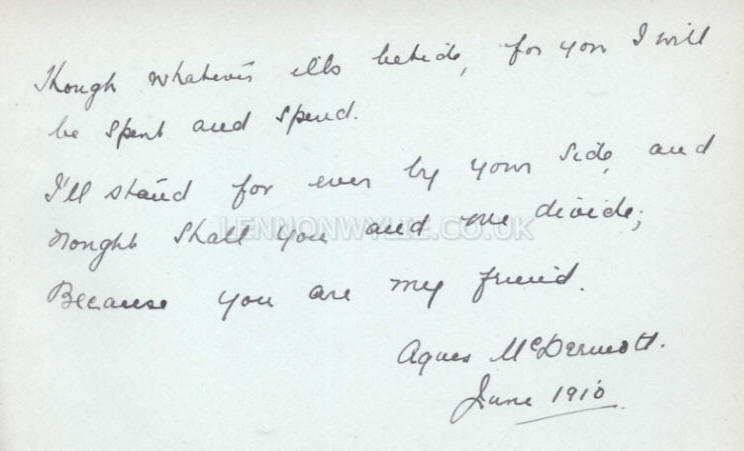 Though whatever ills betide, for you I will
be spent and spend.
I'll stand for ever by your side, and
nought shall you and me divide;
LENNONWYLIE.CO.UK
Because you are my friend.
Agnes McDermott.
June 1910